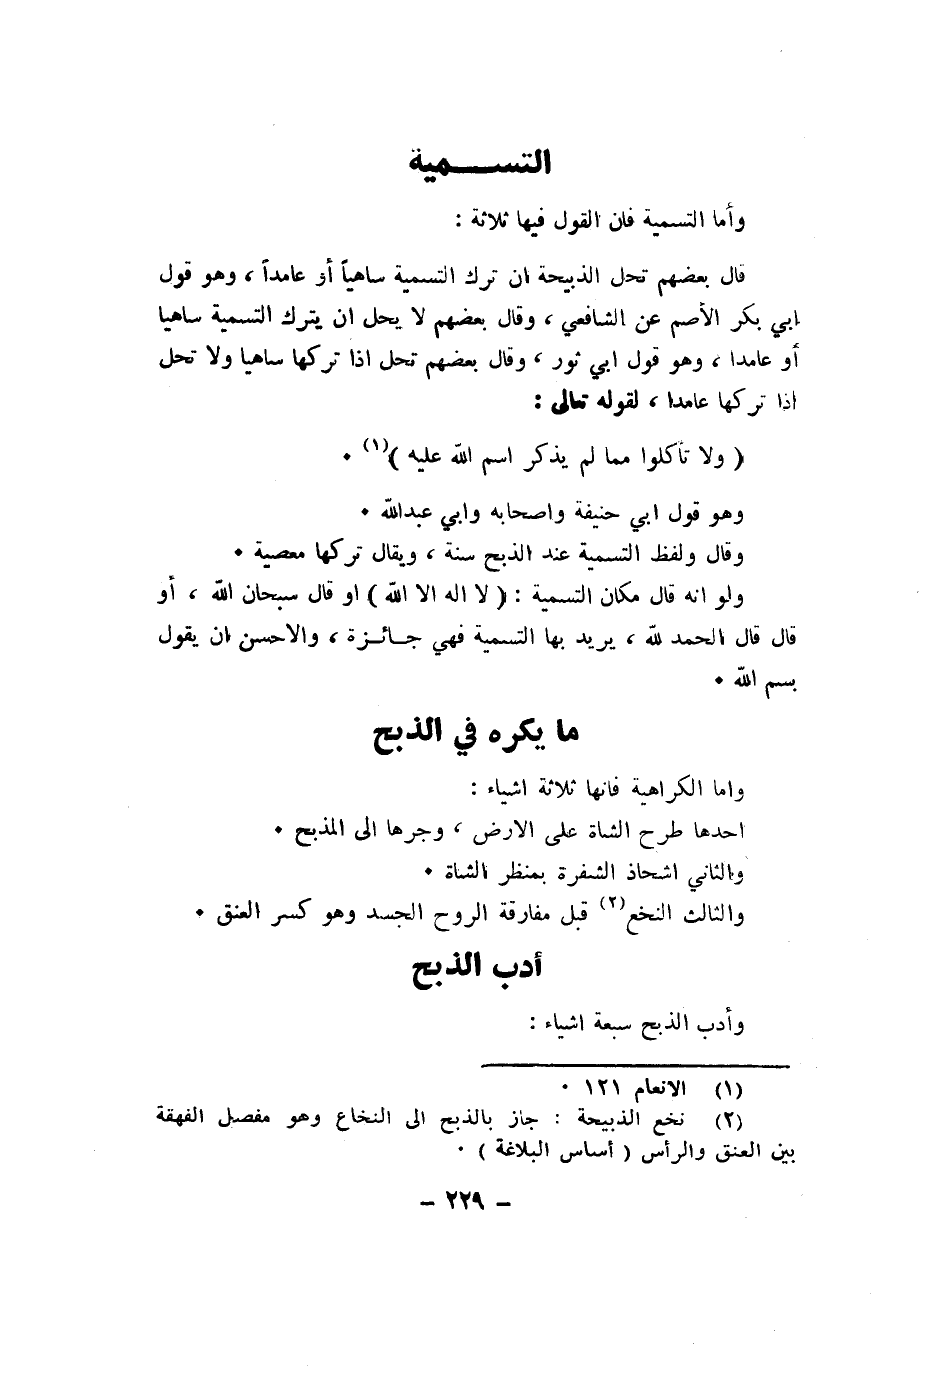 التســـمية
وأما التسمية فان القول فيها ثلاثة :
قال بعضهم تحل الذبيحة ان ترك التسمية ساهياً أو عامداً ، وهو قول
ابي بكر الأصم عن الشافعي ، وقال بعضهم لا يحل ان يترك التسمية ساهيا
أو عامدا ، وهو قول ابي ثور ، وقال بعضهم تحل اذا تركها ساهيا ولا تحل
اذا تركها عامدا ، لقوله تعالى :
( ولا تأكلوا مما لم يذكر اسم الله عليه )(١) ٠
وهو قول ابي حنيفة واصحابه وابي عبدالله ٠
وقال ولفظ التسمية عند الذبح سنة ، ويقال تركها معصية ٠
ولو انه قال مكان التسمية : ( لا اله الا الله ) او قال سبحان الله ، أو
قال قال الحمد لله ، يريد بها التسمية فهي جـائـزة ، والاحسن ان يقول
بسم الله ٠
ما يكره في الذبح
واما الكراهية فانها ثلاثة اشياء :
احدها طرح الشاة على الارض ، وجرها الى المذبح ٠
والثاني اشحاذ الشفرة بمنظر الشاة ٠
والثالث النخع(٢) قبل مفارقة الروح الجسد وهو كسر العنق ٠
أدب الذبح
وأدب الذبح سبعة اشياء :
(١) الانعام ١٢١ ٠
(٢) نخع الذبيحة : جاز بالذبح الى النخاع وهو مفصل الفهقة
بين العنق والرأس ( أساس البلاغة ) ٠
– ٢٢٩ –